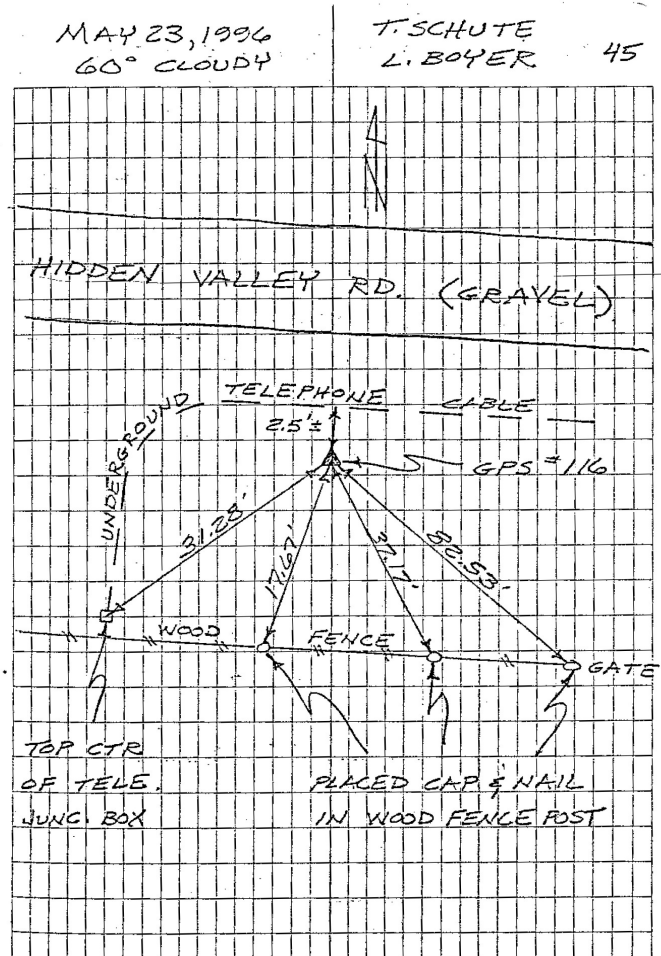 MAY 23, 1996
60° CLOUDY
T. SCHUTE
L. BOYER
45
N
HIDDEN VALLEY RD. (GRAVEL)
UNDERGROUND TELEPHONE CABLE
2.5'±
GPS #116
31.28'
17.67'
37.17'
82.53'
WOOD FENCE
GATE
TOP CTR
OF TELE.
JUNC. BOX
PLACED CAP & NAIL
IN WOOD FENCE POST